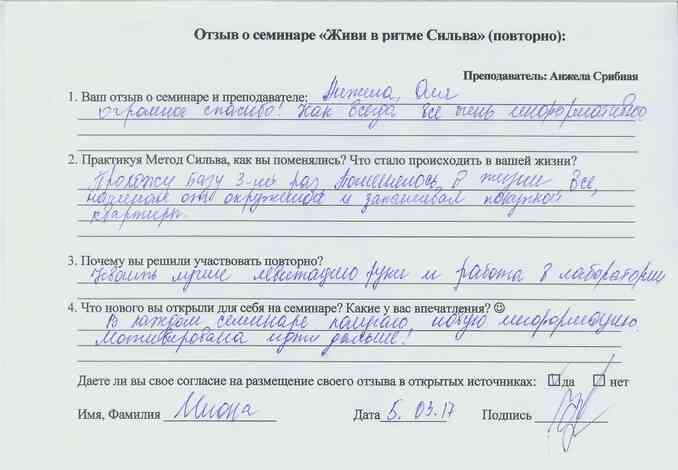 Отзыв о семинаре «Живи в ритме Сильва» (повторно):
Преподаватель: Анжела Срибная
1. Ваш отзыв о семинаре и преподавателе: Анжела, Оля
огромное спасибо! Как всегда все очень информативно
2. Практикуя Метод Сильва, как вы поменялись? Что стало происходить в вашей жизни?
Прохожу базу 3-ий раз. Поменялось в жизни все,
начиная от окружения и заканчивая покупкой
квартиры.
3. Почему вы решили участвовать повторно?
лучше левитацию руки и работа в лаборатории
4. Что нового вы открыли для себя на семинаре? Какие у вас впечатления? ☺
В каждом семинаре получаю новую информацию.
Мотивирована идти дальше!
Даете ли вы свое согласие на размещение своего отзыва в открытых источниках: да нет
Имя, Фамилия Дата 5. 03.17 Подпись